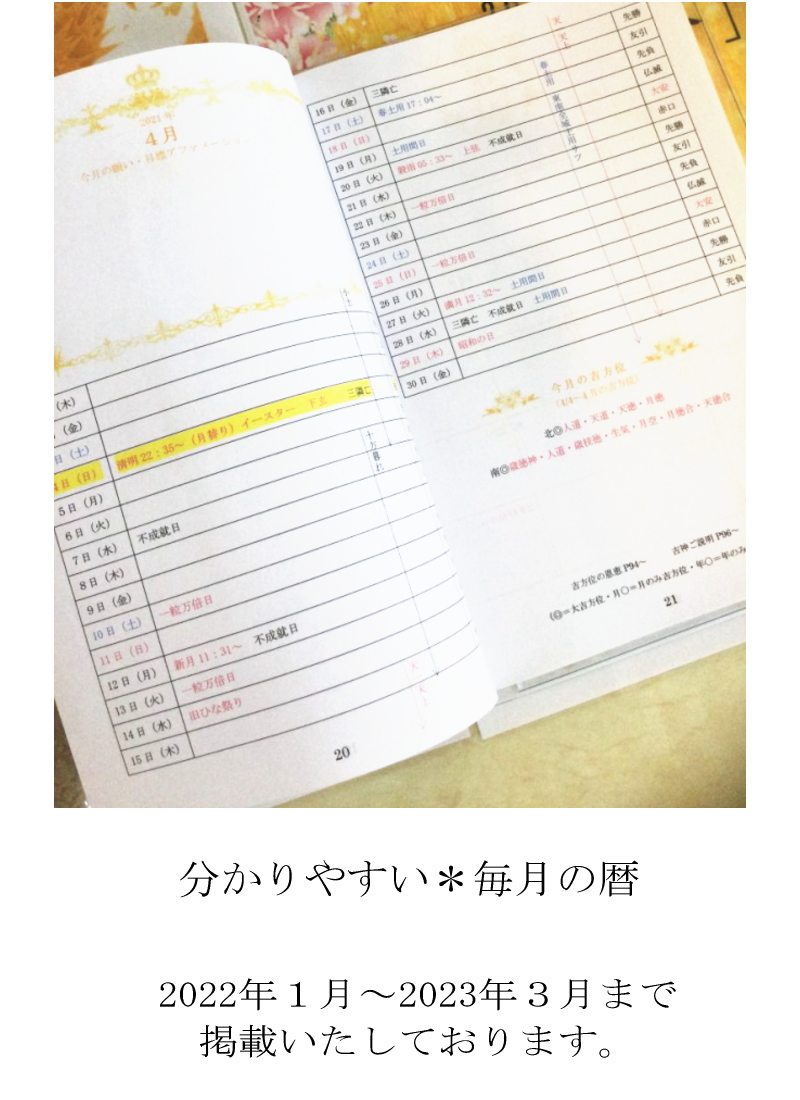 2021年
4月
今月の願い・目標アファメーション
（木）
（金）
日（土）
4日（日） 清明22：35～（月替り）イースター 下弦 三隣亡
5日（月）
6日（火）
7日（水） 不成就日
8日（木）
9日（金）
10日（土） 一粒万倍日
11日（日）
12日（月） 新月11：31～ 不成就日
13日（火） 一粒万倍日
14日（水） 旧ひな祭り
15日（木）
十方暮れ
天
天上
20
16日（金） 三隣亡 先勝
17日（土） 春土用17：04～ 友引
18日（日） 先負
19日（月） 土用間日 仏滅
20日（火） 穀雨05：33～ 上弦 不成就日 大安
21日（水） 赤口
22日（木） 一粒万倍日 先勝
23日（金） 友引
24日（土） 先負
25日（日） 一粒万倍日 仏滅
26日（月） 大安
27日（火） 満月12：32～ 土用間日 赤口
28日（水） 三隣亡 不成就日 土用間日 先勝
29日（木） 昭和の日 友引
30日（金） 先負
天
天上
春土用
今月の吉方位
（4/4～4月の吉方位）
北◎人道・天道・天徳・月徳
南◎歳徳神・人道・歳枝徳・生気・月空・月徳合・天徳合
吉方位の恩恵P94～ 吉神ご説明P96～
（◎＝大吉方位・月〇＝月のみ吉方位・年〇＝年のみ
21
分かりやすい＊毎月の暦
2022年１月～2023年３月まで
掲載いたしております。